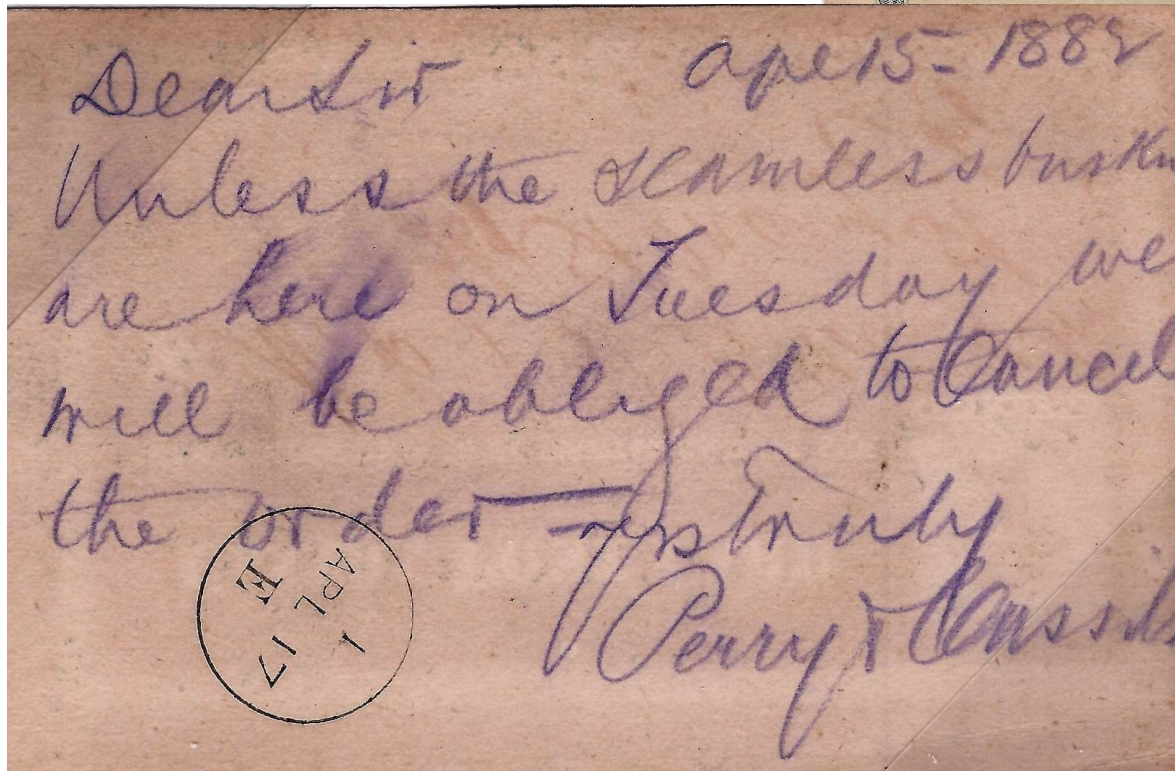 Dear Sir Apl 15 - 1882
Unless the seamless buskin
are here on Tuesday we
will be obliged to Cancel
the order — yrs truly
Perry & Cassils
1
APL 17
E